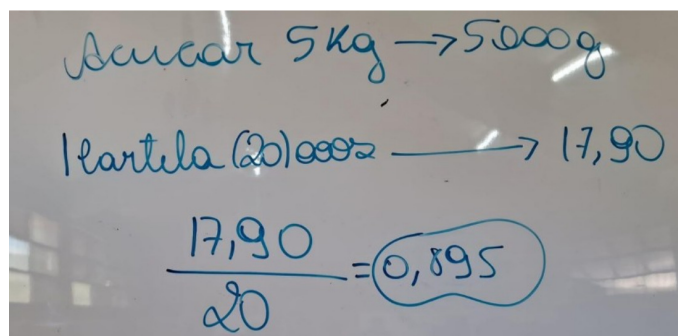 Acucar 5Kg → 5000g
1 Cartela (20) ovos → 17,90
17,90
20
= 0,895